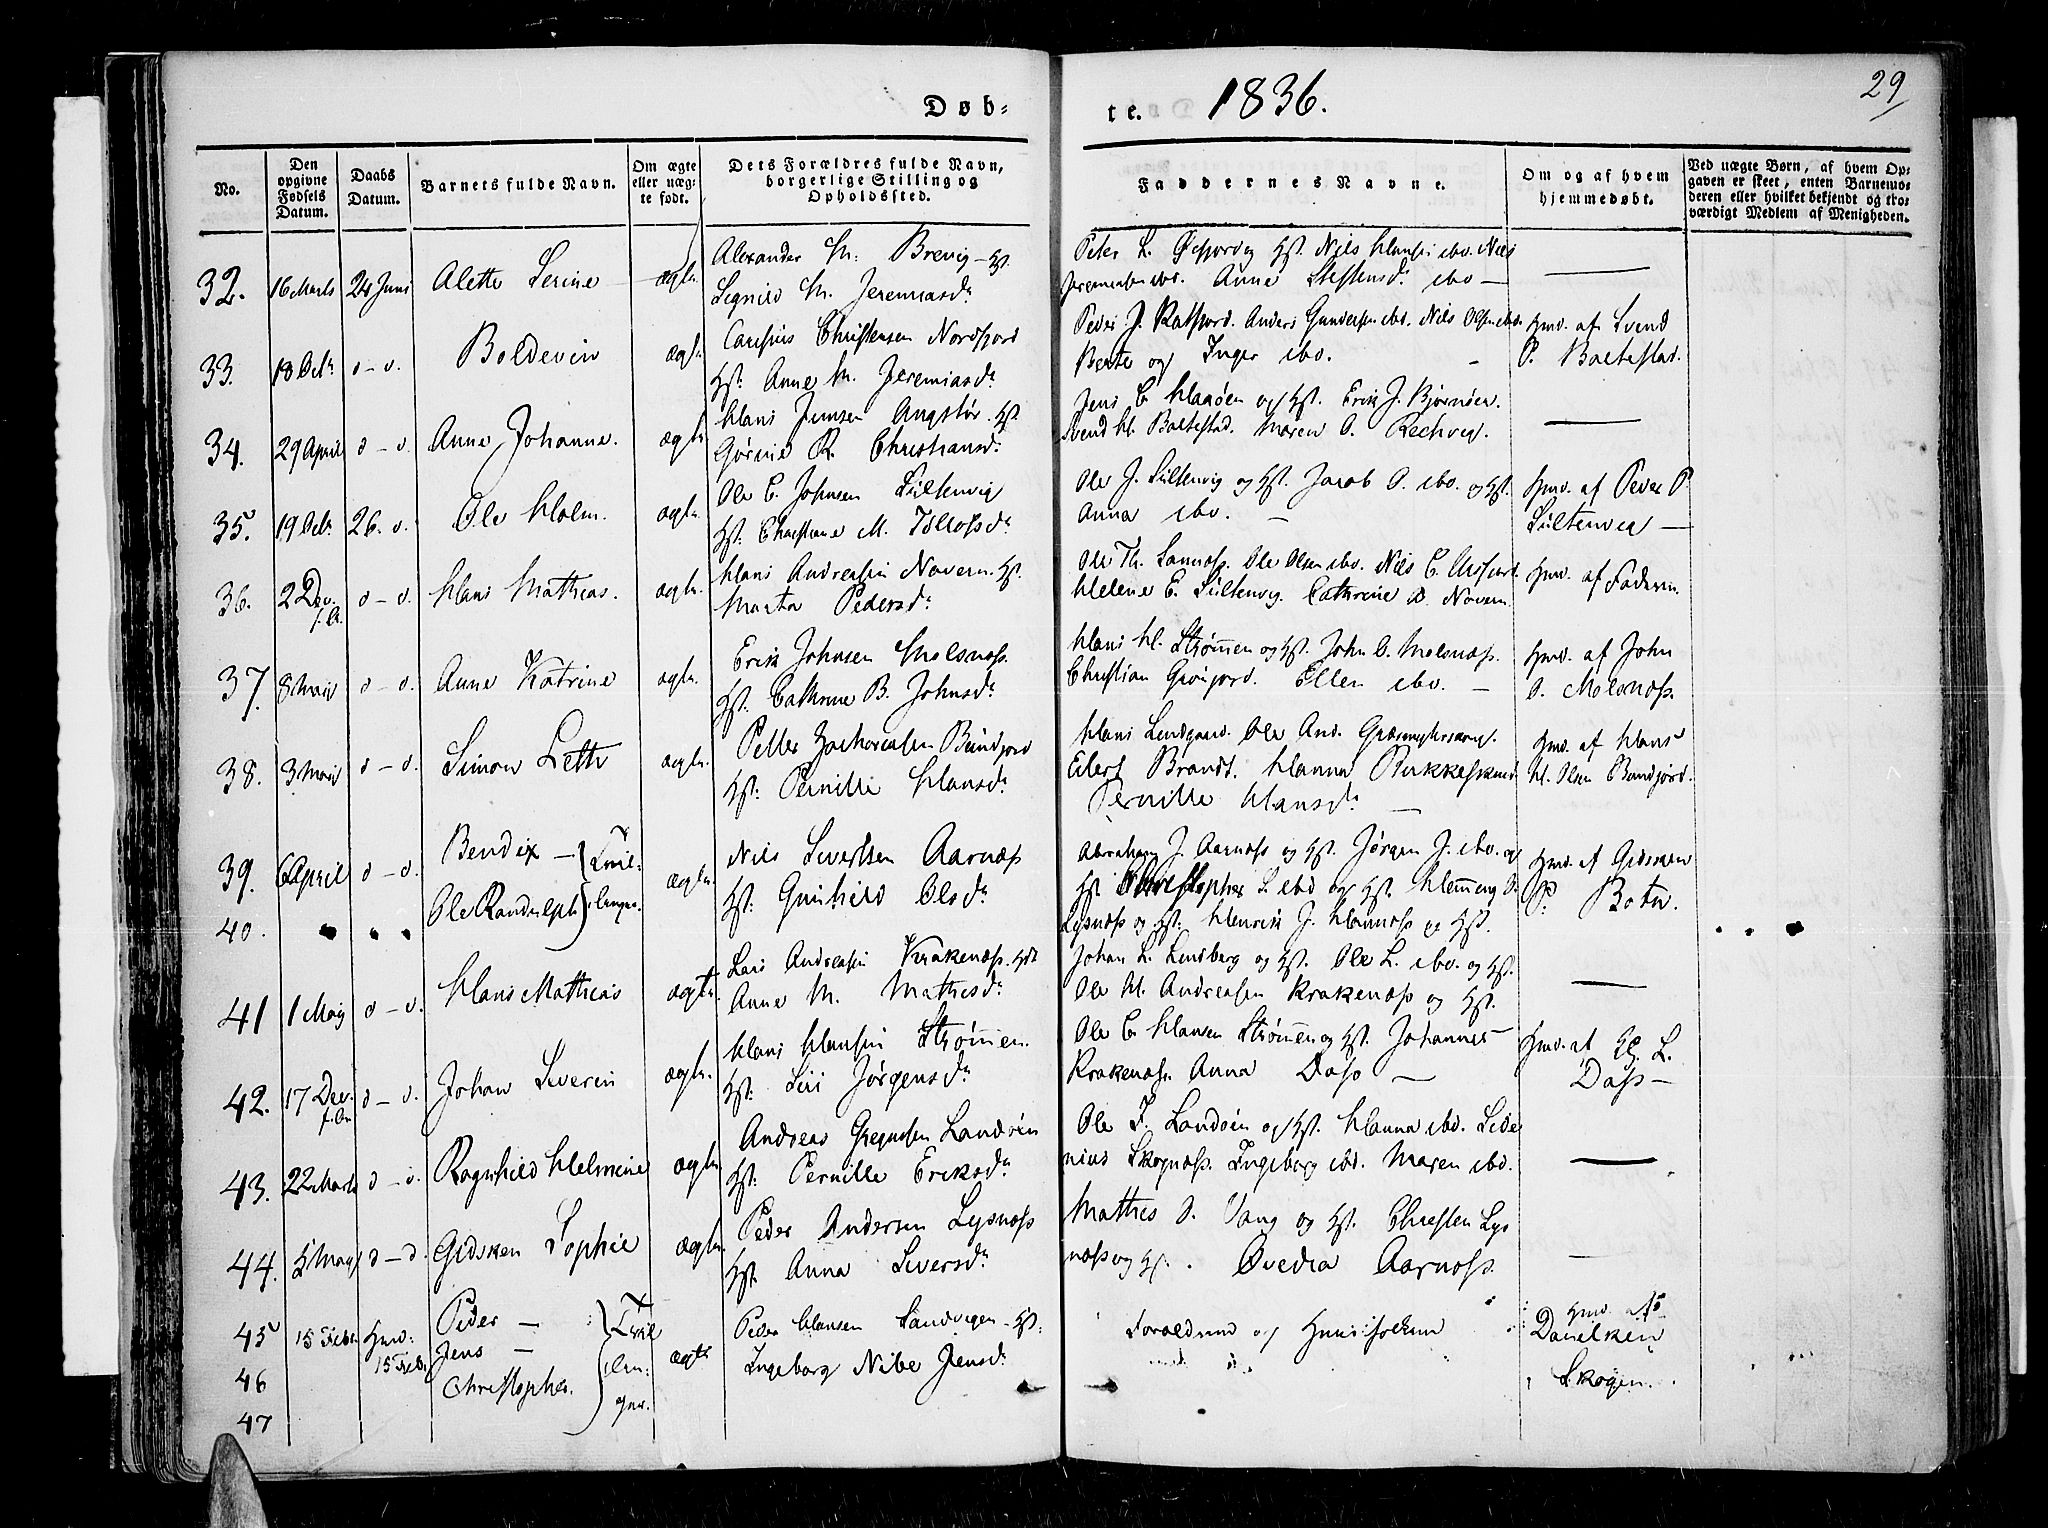 Døb-
te. 1836.
29
No.
Den opgivne Fødsels Datum.
Daabs Datum.
Barnets fulde Navn.
Om ægte eller uægte født.
Dets Forældres fulde Navn, borgerlige Stilling og Opholdssted.
Faddernes Navne.
Om og af hvem hjemmedøbt.
Ved uægte Børn, af hvem Opgaven er skeet, enten Barnemoderen eller hvilket bekjendt og troværdigt Medlem af Menigheden.
32. 16 Marts 24 Juni Alette Serine ægte Alexander M. Brevig – Hst.
Signild M. Jeremiasdr
Hst. Nils Hansen ibd. Nils
Anne ibd –
33. 18 Octr d – o. Boldevin ægte Christensen Nordfjord
Hst: Anne M. Jeremiasdr
Peder J. Katfjord. Anders Gundersen ibd. Nils Olsen ibd.
Berte og Inger ibd.
Hmd. af Svend
P. Baltestad.
34. 29 April d – o. Anne Johanne. ægte Hans Jensen Angstør. Hst.
R. Christiansdr
Jens C. og Hst. Erik J. Bjørnøen.
Svend H. Baltestad. Maren O.
35. 19 Octr 26. o. Ole Holm. ægte Ole C. Johnsen Sultenvig
Hst: Christiane M. Tollefsdr
Ole J. Sultenvig og Hst. Jacob O. ibd. og Hst.
Anna ibd. –
Hmd. af Peder P.
Sultenvig –
36. 2 Dec. f. A. d – o. Hans Mathias. ægte Hans Andreasen Navern. Hst.
Marta Pedersdr
Ole Th. Ole Olsen ibd. Nils C.
Helene E. Sultenvig. Cathrine Navern
Hmd. af Faderen.
37. 8 Mai d – o. Anne Katrine ægte Erik Johnsen Molsnæs.
Hst: Cathrine B. Johnsdr
Hans H. Strømmen og Hst. John O. Molsnæs.
Christian Grønfjord. Ellen ibd. –
Hmd. af John
O. Molsnæs.
38. 3 Mai d – o. Simon Leth ægte Petter Zachariasen Bundfjord
Hst: Pernille Hansdr
Hans Lundgaard. Ole And.
Eilert Brandt. Hanna
Pernille Hansdr –
Hmd. af Hans
H. Olsen Bundfjord.
39. 6 April d – o. Bendix – Tvil- ægte Nils Sivertsen Aarnæs
40. Ole Randulph linger. Hst: Gunhild Olsdr
Abraham J. Aarnæs og Hst. Jørgen J. ibd. og
Hst Christopher L. ibd og Hst. Hemming O.
Lysnæs og Hst: Henrik J. Hannæs og Hst.
Hmd. af Gidsken
P. Botn.
41 1 May d – o. Hans Mathias ægte Lars Andreasen Krakenæs. Hst
Anne M. Mathisdr
Johan L. Lundberg og Hst. Ole L. ibd. og Hst.
Ole H. Andreasen Krakenæs og Hst.
42. 17 Dec. f. A. d – o. Johan Severin ægte Hans Hansen Strømmen.
Hst: Siri Jørgensdr
Ole C. Hansen Strømmen og Hst. Johannes
Krakenæs. Anna Dass –
Hmd. af L.
Dass –
43. 22 Marts d – o. Ragnhild Helmine ægte Andreas Gregusen Landøen
Hst: Pernille Eriksdr
Ole F. Landøen og Hst. Hanna ibd. Side
nius Skognæs. Ingeborg ibd. Maren ibd.
44. 5 May d – d. Gidsken Sophie ægte Peder Andersen Lysnæs
Hst. Anna Siversdr
Mathis O. Vang og Hst. Christen Lys
næs og Hst. Ovedia Aarnæs.
45 15 Febr Hmd: 15 Febr Peder – Tril
46 Jens – lin:
47 Christopher. ger.
ægte Peder Hansen Sandvigen – Hst:
Ingeborg Nibe Jensdr
Forældrene og
Hmd. af
Skogen.